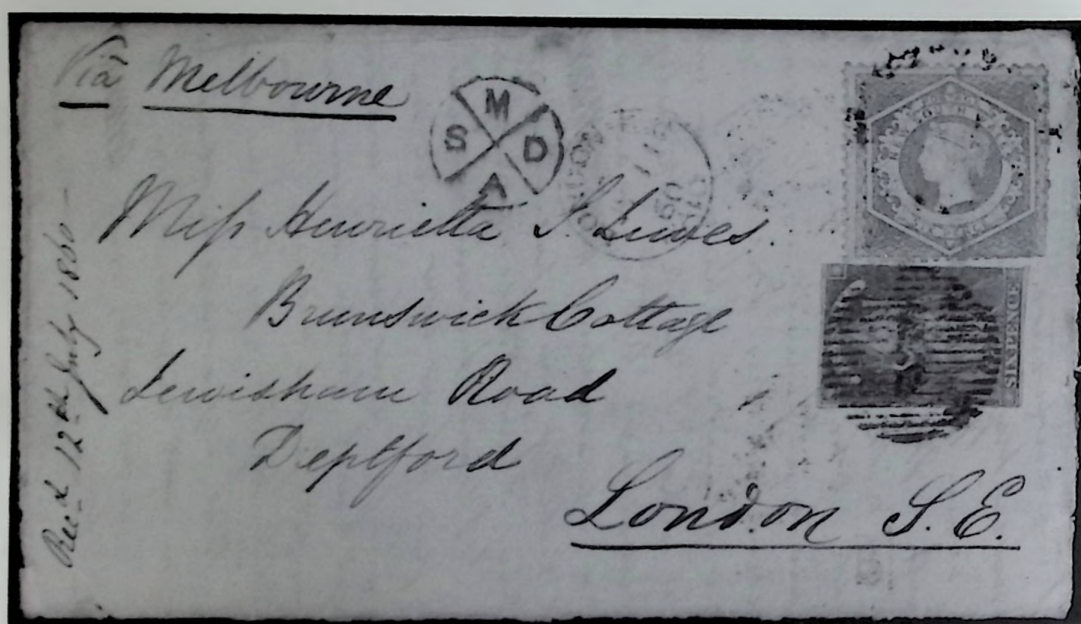 Via Melbourne
M
S D
A
Miss Henrietta S.
Brunswick Cottage
Lewisham Road
Deptford
London S.E.
Recd 12th July 1860
SIXPENCE